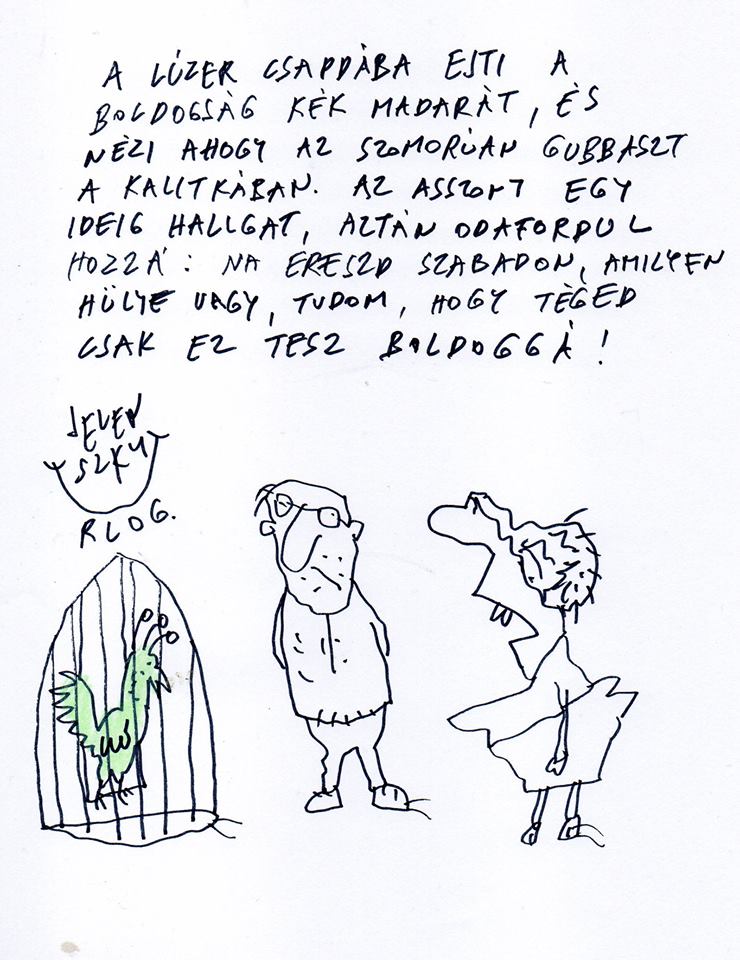 A LÚZER CSAPDÁBA EJTI A
BOLDOGSÁG KÉK MADARÁT, ÉS
NÉZI AHOGY AZ SZOMORÚAN GUBBASZT
A KALITKÁBAN. AZ ASSZONY EGY
IDEIG HALLGAT, AZTÁN ODAFORDUL
HOZZÁ: NA ERESZD SZABADON, AMILYEN
HÜLYE VAGY, TUDOM, HOGY TÉGED
CSAK EZ TESZ BOLDOGGÁ!
JELEN
SZKY
BLOG.